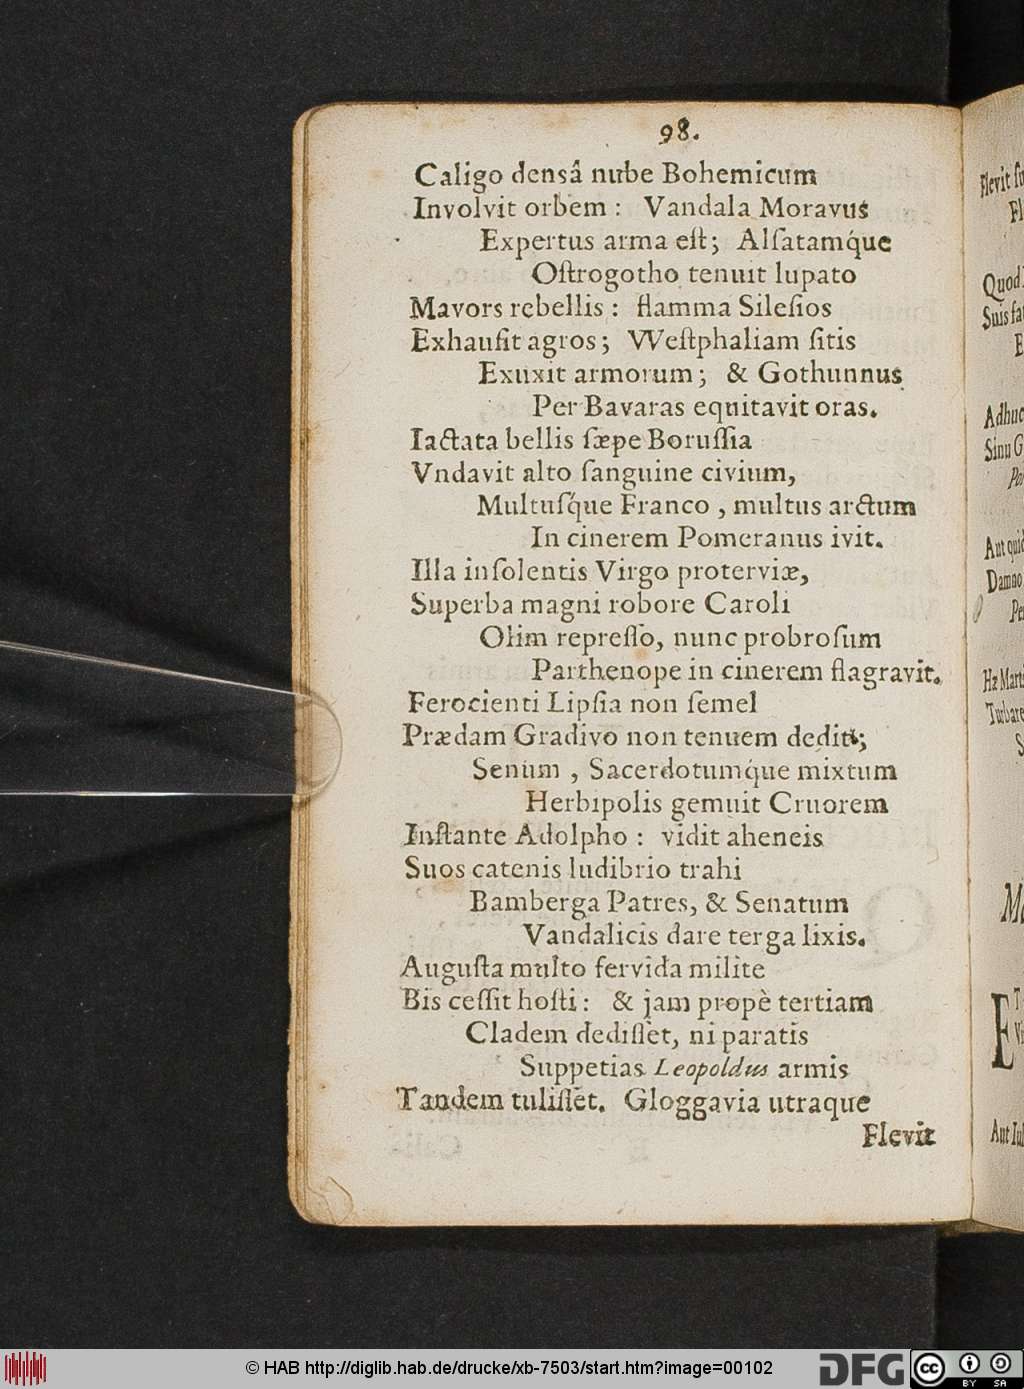 98.
Caligo densâ nube Bohemicum
Involvit orbem : Vandala Moravus
Expertus arma eſt; Alſatamq́ue
Oſtrogotho tenuit lupato
Mavors rebellis : flamma Sileſios
Exhauſit agros; VVeſtphaliam ſitis
Exuxit armorum; & Gothunnus
Per Bavaras equitavit oras.
Iactata bellis ſæpe Boruſſia
Vndavit alto ſanguine civium,
Multuſq́ue Franco, multus arctum
In cinerem Pomeranus ivit.
Illa inſolentis Virgo proterviæ,
Superba magni robore Caroli
Olim repreſſo, nunc probroſum
Parthenope in cinerem flagravit.
Ferocienti Lipſia non ſemel
Prædam Gradivo non tenuem dedit;
Senum, Sacerdotumq́ue mixtum
Herbipolis gemuit Cruorem
Inſtante Adolpho : vidit aheneis
Suos catenis ludibrio trahi
Bamberga Patres, & Senatum
Vandalicis dare terga lixis.
Auguſta multo fervida milite
Bis ceſſit hoſti : & jam propè tertiam
Cladem dediſſet, ni paratis
Suppetias Leopoldus armis
Tandem tuliſſet. Gloggavia utraque
Flevit
Flevit
Quod
Suis
Adhuc
Sinu
Aut
Damno
© HAB http://diglib.hab.de/drucke/xb-7503/start.htm?image=00102
DFG
cc BY SA